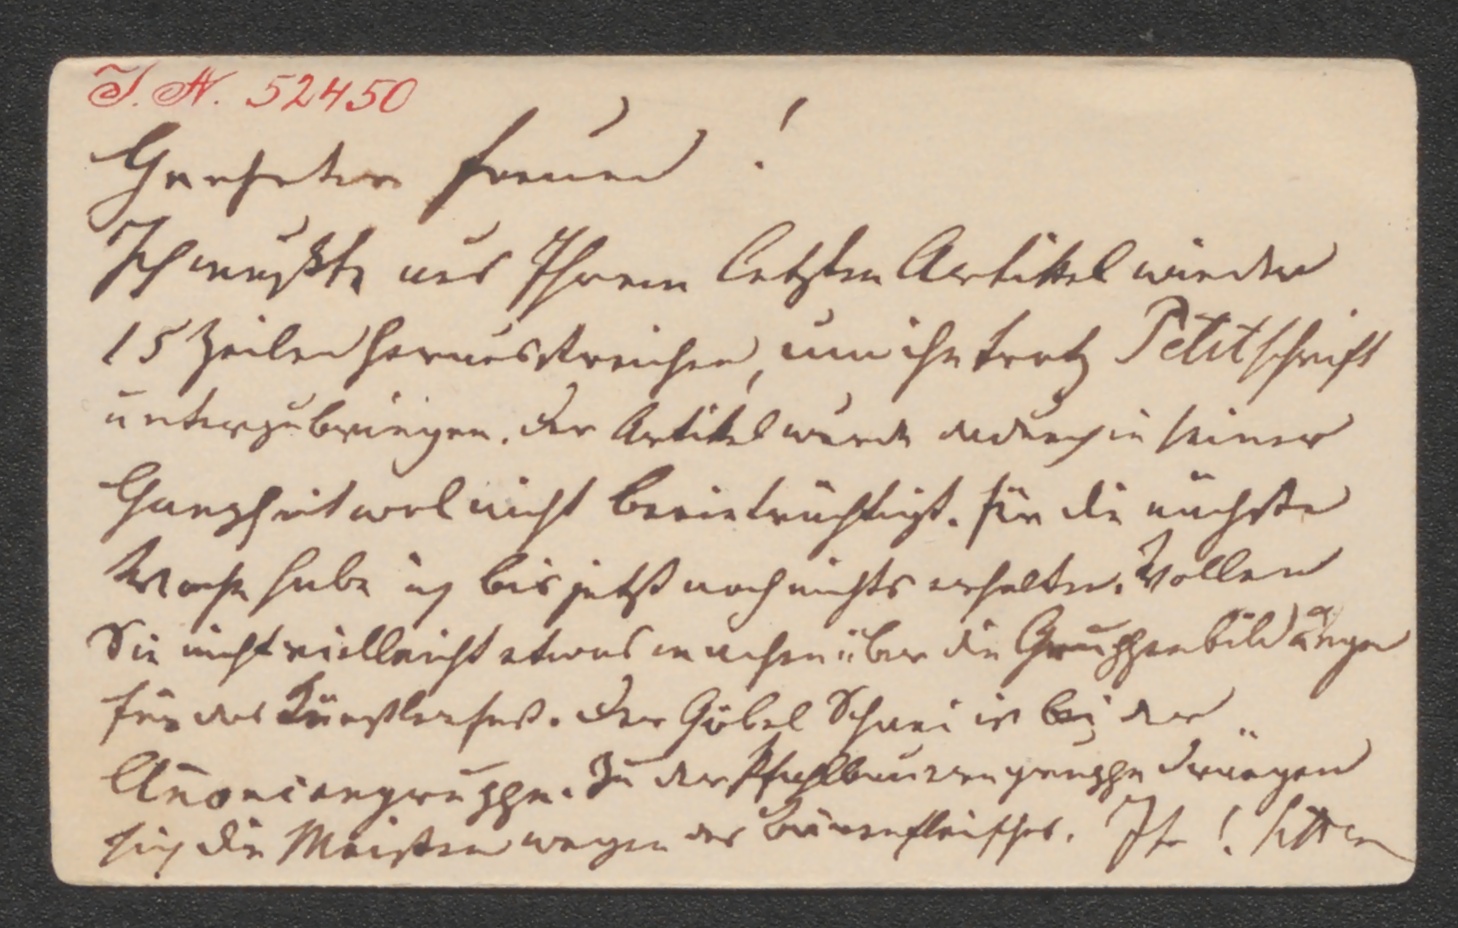 J. N. 52450
Geehrter Freund!
Ich mußte aus Ihrem letzten Artikel wieder
15 Zeilen herausstreichen, um ihn trotz Petitschrift
unterzubringen. Der Artikel wurde dadurch in seiner
Ganzheit wol nicht beeinträchtigt. Für die nächste
Woche habe ich bis jetzt noch nichts erhalten. Wollen
Sie nicht vielleicht etwas machen über die Gruppenbildungen
für das Künstlerfest. Der Göbel ist bei der
Zu der Pfahlbauerngruppe drängen
sich die Meisten wegen des Bärenfleisches. Ihr